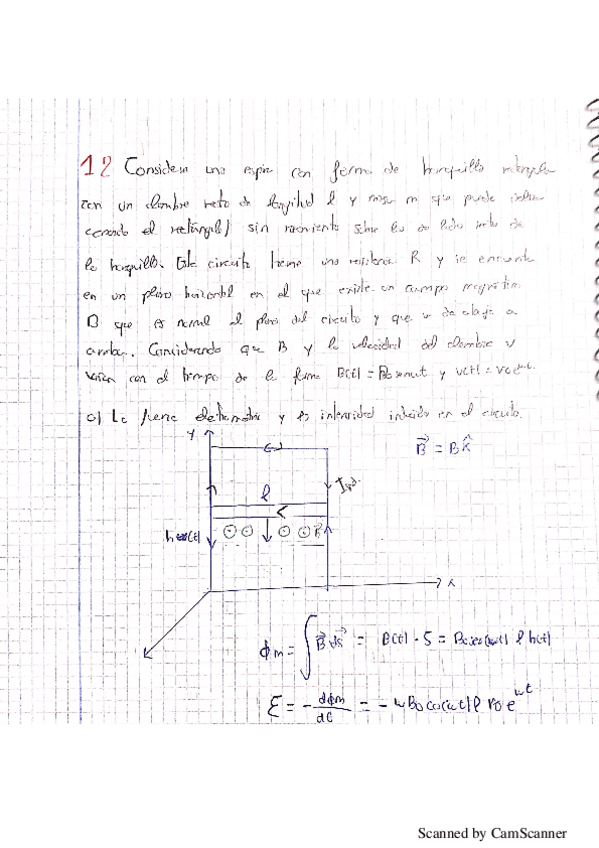 12 Considera una espira con forma de horquilla rectangular
con un alambre recto de longitud l y masa m que puede
cerrando el rectángulo) sin rozamiento sobre los dos lados rectos de
la horquilla. Este circuito tiene una resistencia R y se encuentra
en un plano horizontal en el que existe un campo magnético
B que es normal al plano del circuito y que va de abajo a
arriba. Considerando que B y la velocidad del alambre v
varían con el tiempo de la forma B(t) = B₀ senωt y v(t) =
a) La fuerza electromotriz y la intensidad inducida en el circuito.
Y
B⃗ = B k̂
l
h(t)
B⃗
x
ϕm = ∫ B⃗ ds⃗ = B(t) · S = l h(t)
ε = - dϕm/dt = - ω B₀ cos(ωt) l v₀ e^ωt
Scanned by CamScanner